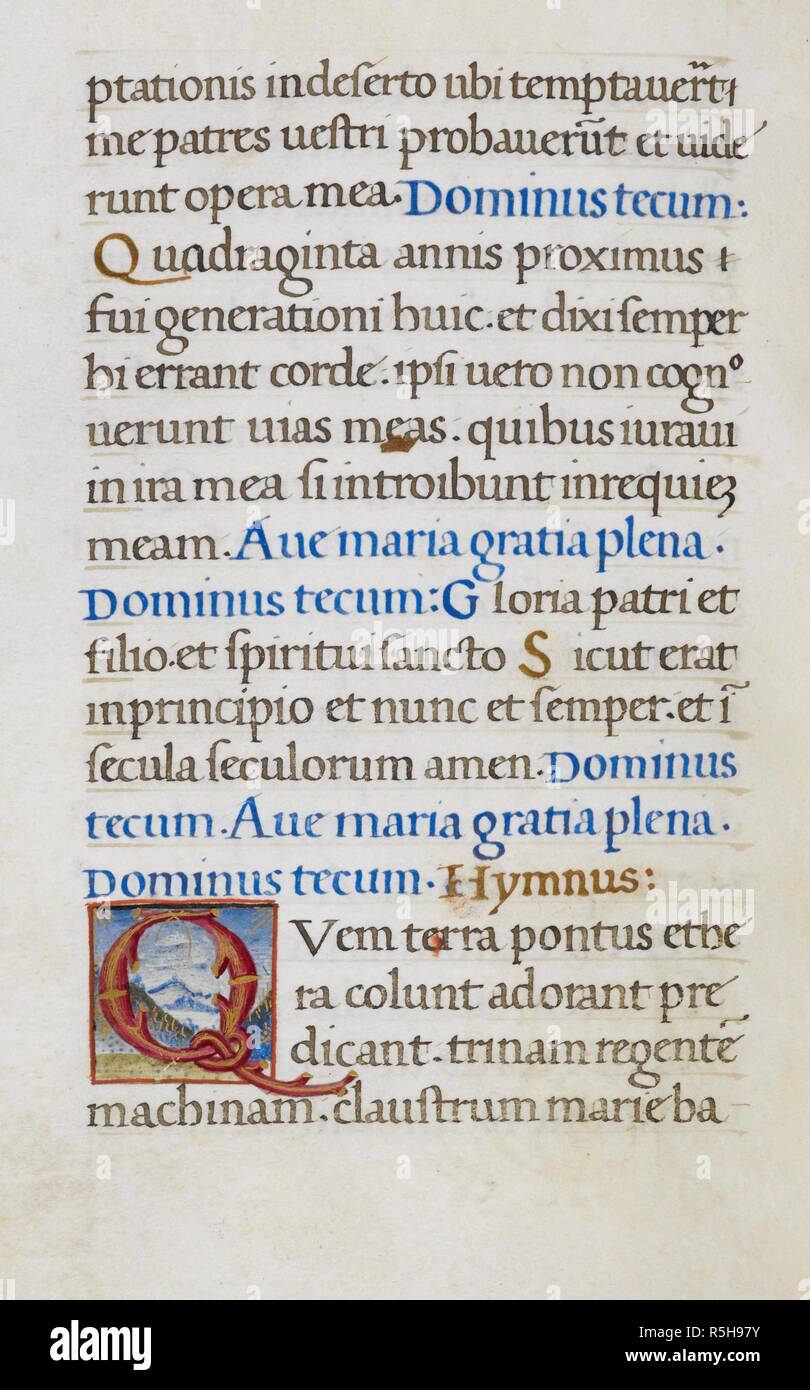 ptationis indeserto ubi temptauer̃t
me patres uestri probauerũt et uide
runt opera mea. Dominus tecum:
Quadraginta annis proximus
fui generationi huic. et dixi semper
hi errant corde. ipsi uero non cognº
uerunt uias meas. quibus iuraui
in ira mea si introibunt inrequieꝫ
meam. Aue maria gratia plena.
Dominus tecum: Gloria patri et
filio. et spiritui sancto Sicut erat
inprincipio et nunc et semper. et ĩ
secula seculorum amen. Dominus
tecum. Aue maria gratia plena.
Dominus tecum. Hymnus:
QVem terra pontus ethe
ra colunt adorant pre
dicant. trinam regentẽ
machinam. claustrum marie ba
alamy
Image ID: R5H97Y
www.alamy.com